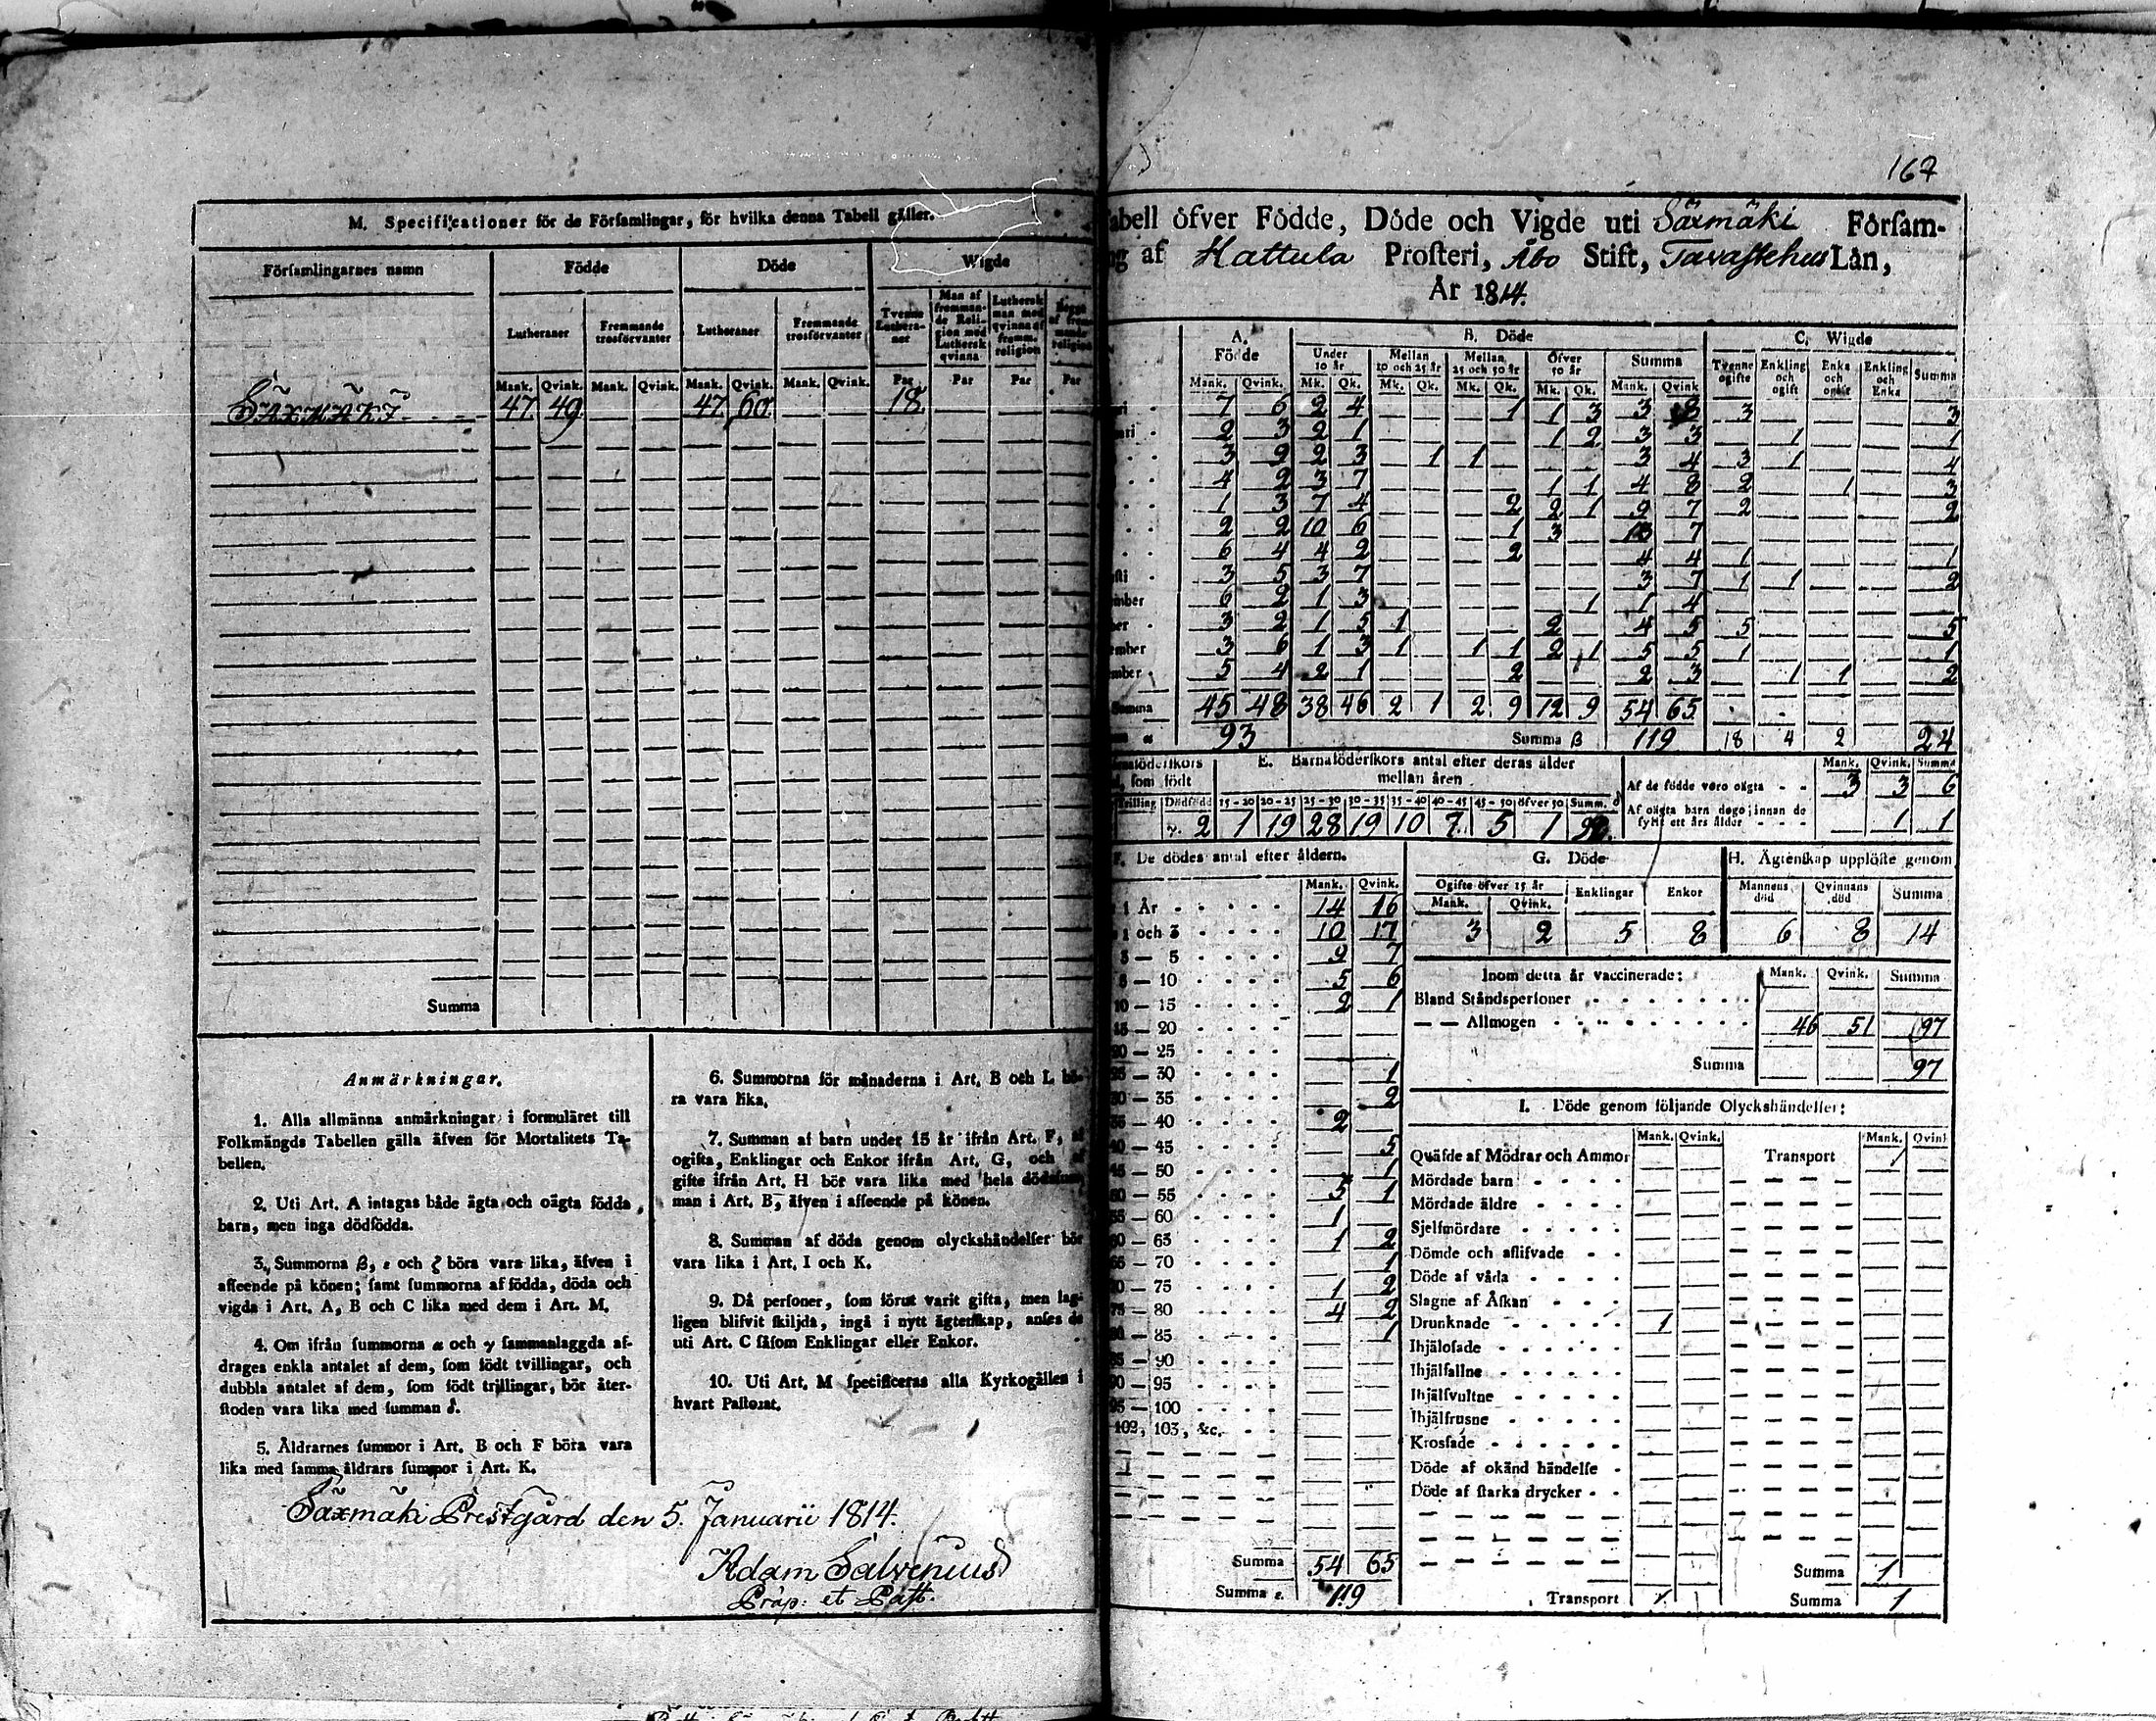 M. Specificationer för de Församlingar, för hvilka denna Tabell gäller.
Församlingarnes namn Födde Döde Wigde
Lutheraner Fremmande trosförvanter Lutheraner Fremmande trosförvanter Tvenne Lutheraner Man af fremmande Religion med Luthersk qvinna Luthersk man med qvinna af fremm. religion
Mank. Qvink. Mank. Qvink. Mank. Qvink. Mank. Qvink. Par Par Par Par
SÄXMÄKI 47. 49. 47. 60. 18.
Summa
Anmärkningar.
1. Alla allmänna anmärkningar i formuläret till
Folkmängds Tabellen gälla äfven för Mortalitets Ta-
bellen.
2. Uti Art. A intagas både ägta och oägta födda
barn, men inga dödfödda.
3. Summorna β, ε och ζ böra vara lika, äfven i
afseende på könen; samt summorna af födda, döda och
vigda i Art. A, B och C lika med dem i Art. M.
4. Om ifrån summorna α och γ sammanlaggda af-
drages enkla antalet af dem, som födt tvillingar, och
dubbla antalet af dem, som födt trillingar, bör åter-
stoden vara lika med summan δ.
5. Åldrarnes summor i Art. B och F böra vara
lika med samma åldrars summor i Art. K.
6. Summorna för månaderna i Art. B och L bö-
ra vara lika.
7. Summan af barn under 15 år ifrån Art. F, af
ogifta, Enklingar och Enkor ifrån Art. G, och af
gifte ifrån Art. H bör vara lika med hela dödssum
man i Art. B, äfven i afseende på könen.
8. Summan af döda genom olyckshändelser bör
vara lika i Art. I och K.
9. Då personer, som förut varit gifta, men lag-
ligen blifvit skiljda, ingå i nytt ägtenskap, anses de
uti Art. C såsom Enklingar eller Enkor.
10. Uti Art. M specificeras alla Kyrkogällen i
hvart Pastorat.
Säxmäki Prestgård den 5. Januarii 1814.
Adam Salvenius
Præp. et Past.
167
abell öfver Födde, Döde och Vigde uti Säxmäki Församl-
ng af Hattula Prosteri, Åbo Stift, Tavastehus Län,
År 1814.
A. Födde B. Döde C. Wigde
Under 10 år Mellan 10 och 25 år Mellan 25 och 50 år Öfver 50 år Summa Tvenne ogifte Enkling och ogift Enka och ogift Enkling och Enka Summa
Mank. Qvink. Mk. Qk. Mk. Qk. Mk. Qk. Mk. Qk. Mank. Qvink
7 6 2 4 1 1 3 3 8 3 3
2 3 2 1 1 2 3 3 1 1
3 9 2 3 1 1 3 4 3 1 4
4 2 3 7 1 1 4 8 2 1 3
1 3 7 4 2 2 1 9 7 2 2
2 2 10 6 1 3 13 7
6 4 4 2 2 4 4 1 1
sti 3 5 3 7 3 7 1 1 2
mber 6 2 1 3 1 1 4
ber 3 2 1 5 1 2 4 5 5 5
ember 3 6 1 3 1 1 1 2 1 5 5 1 1
mber 5 4 2 1 2 2 3 1 1 2
Summa 45 48 38 46 2 1 2 9 12 9 54 65
α 93 Summa β 119 18 4 2 24
E. Barnaföderskors antal efter deras ålder
mellan åren
som födt
Trilling Dödfödd 15-20 20-25 25-30 30-35 35-40 40-45 45-50 öfver 50 Summ. δ
2 1 19 28 19 10 7 5 1
Mank. Qvink. Summa
Af de födde voro oägta 3 3 6
Af oägta barn dogo innan de
fyllt ett års ålder 1 1
F. De dödes antal efter åldern.
Mank. Qvink.
1 År 14 16
1 och 3 10 17
3 — 5 9 7
5 — 10 5 6
10 — 15 2 1
15 — 20
20 — 25
25 — 30 1
30 — 35 2
35 — 40 2
40 — 45 5
45 — 50 1
50 — 55 3 1
55 — 60 1
60 — 65 1 2
65 — 70 1
70 — 75 1 2
75 — 80 4 2
80 — 85 1
85 — 90
90 — 95
95 — 100
102, 103, &c.
Summa 54 65
Summa ε. 119
G. Döde
Ogifte öfver 15 år Enklingar Enkor
Mank. Qvink.
3 2 5 8
H. Ägtenskap upplöste genom
Mannens död Qvinnans död Summa
6 8 14
Inom detta år vaccinerade: Mank. Qvink. Summa
Bland Ståndspersoner
— — Allmogen 46 51 97
Summa 97
I. Döde genom följande Olyckshändelser:
Mank. Qvink. Mank. Qvink
Quäfde af Mödrar och Ammor Transport 1
Mördade barn
Mördade äldre
Sjelfmördare
Dömde och aflifvade
Döde af våda
Slagne af Åskan
Drunknade 1
Ihjälosade
Ihjälfallne
Ihjälsvultne
Ihjälfrusne
Krossade
Döde af okänd händelse
Döde af starka drycker
Summa 1
Transport 1 Summa 1